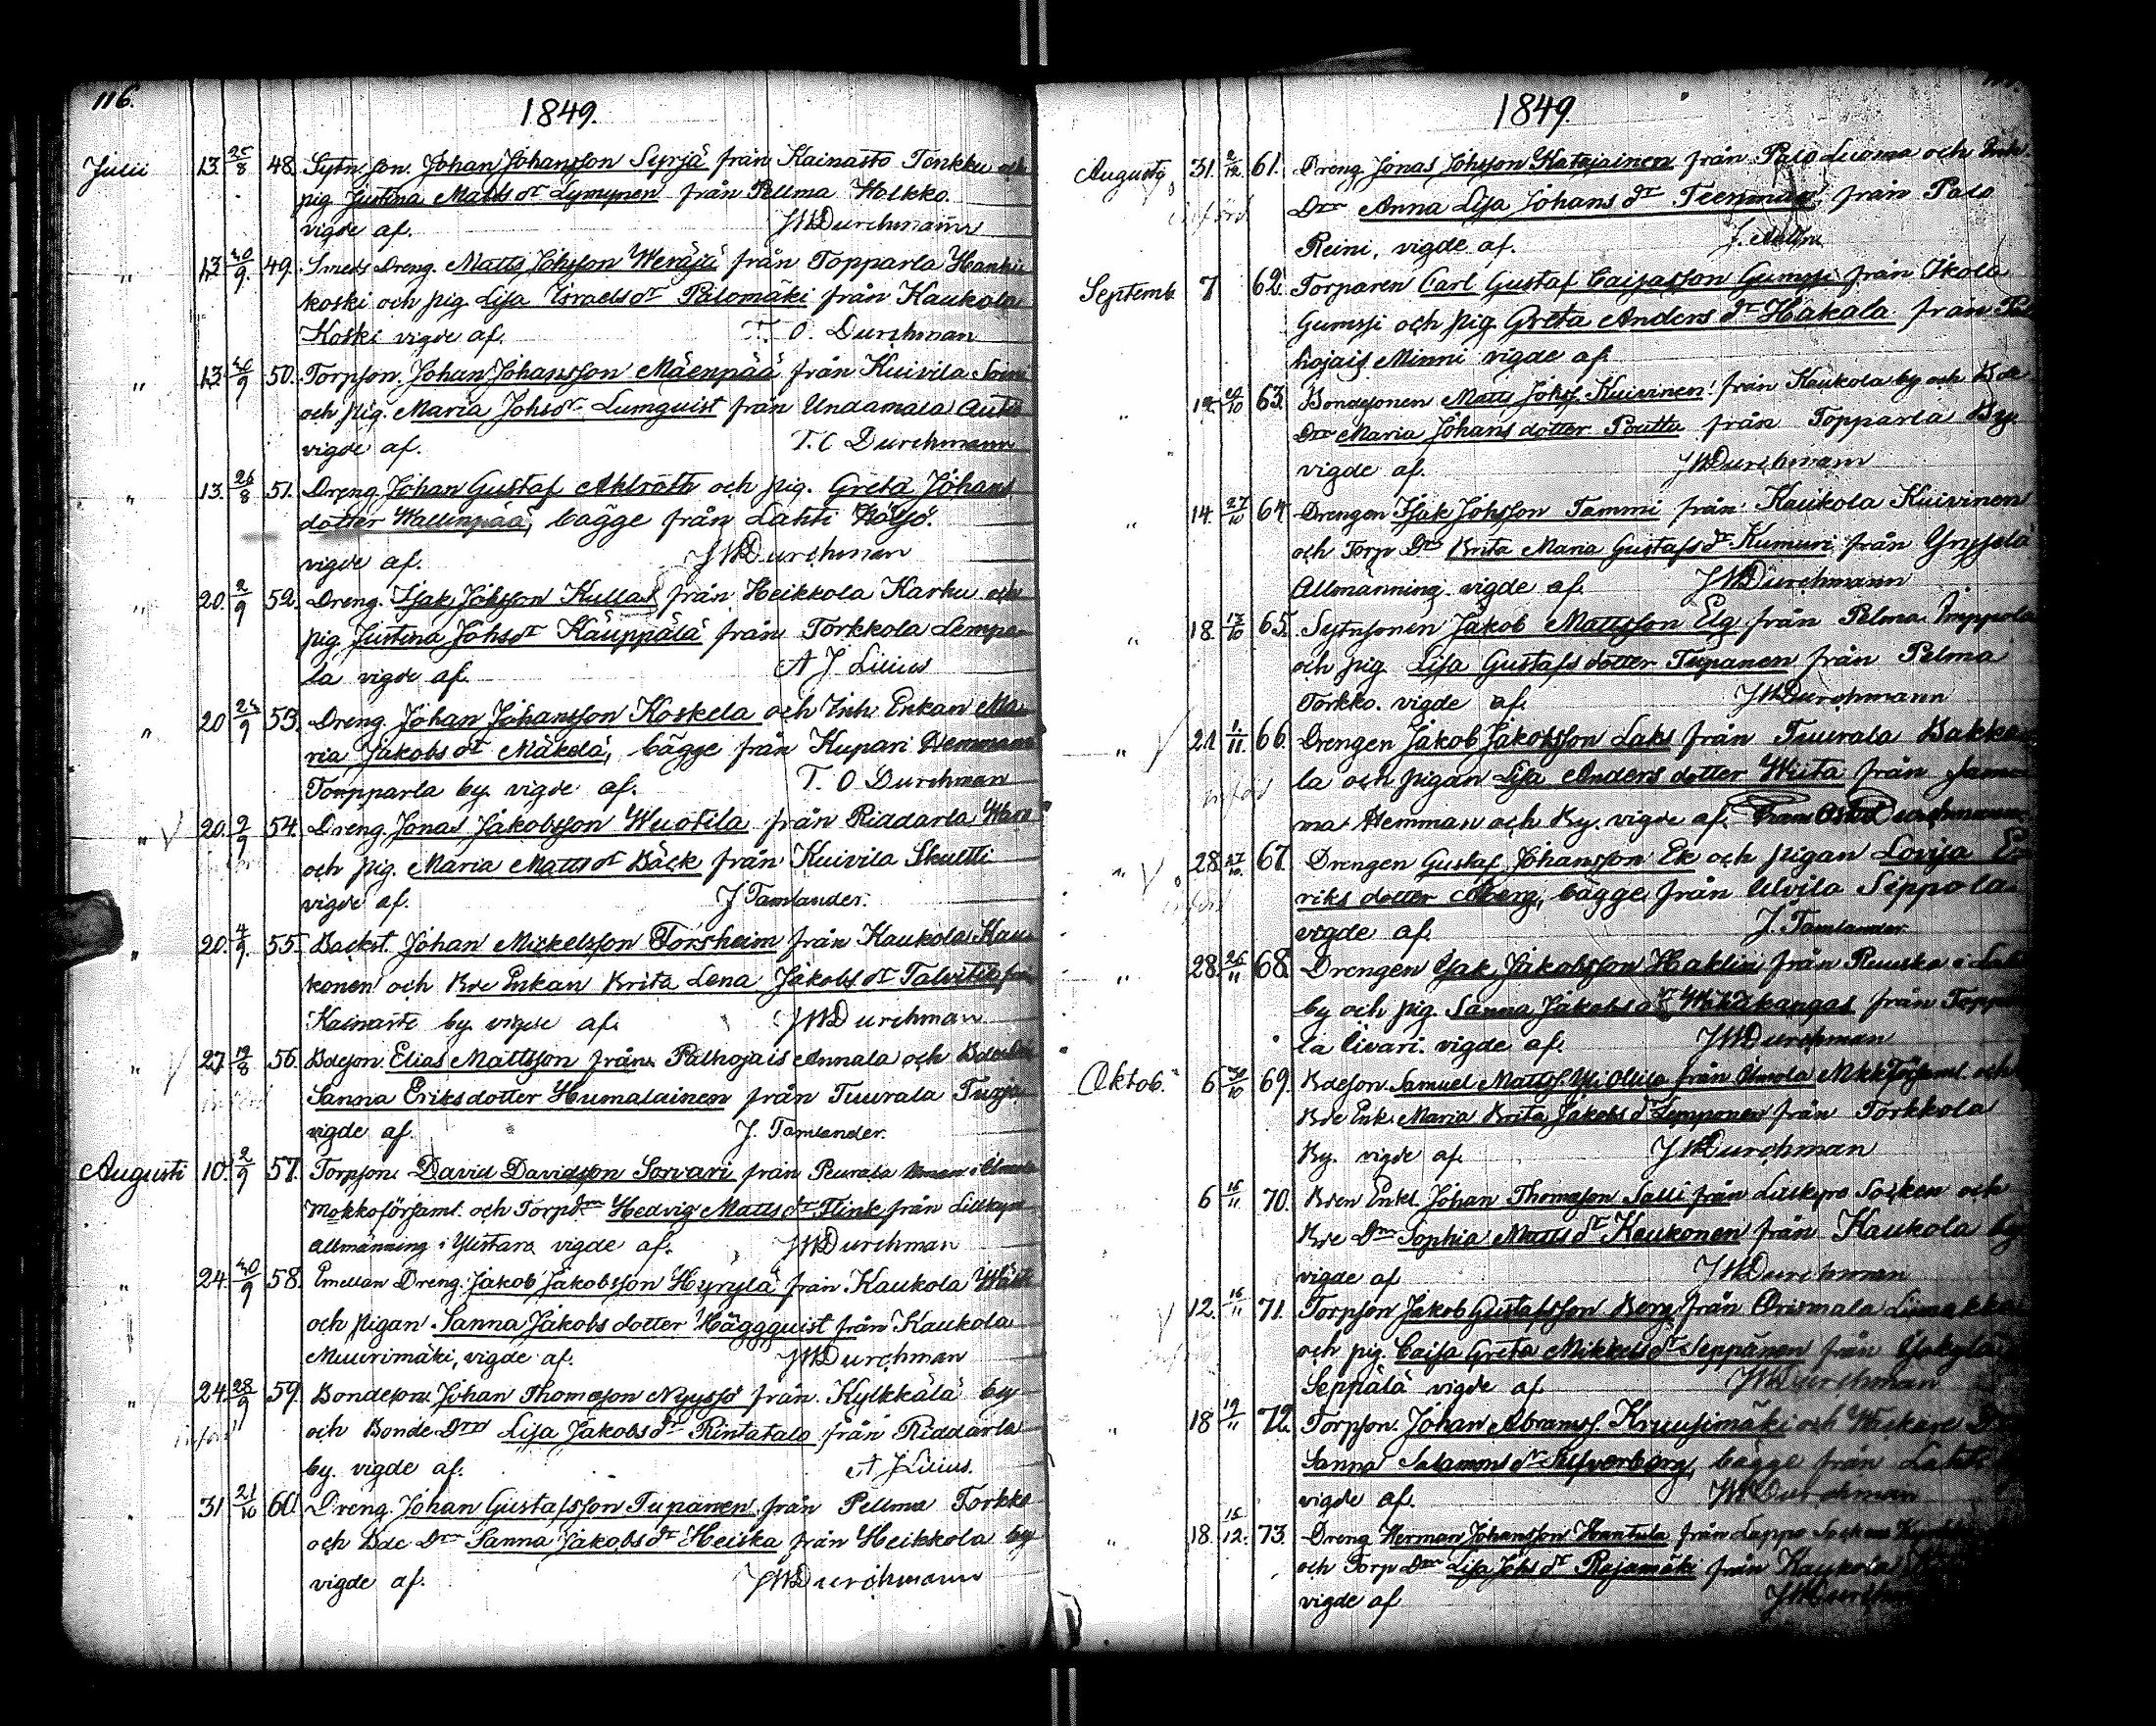 116.
1849.
Julii 13. 25/8 48. Sytn. son. Johan Johansson Syrjä från Kainasto Tenkku och
pig Justina Matts dr Lymynen från Pelma Holkko.
vigde af. JWDurchmann
" 13 30/9. 49. Smeds Dreng. Matts Johsson Weräjä från Topparla Hanhi
koski och pig Lisa Israels dr Palomäki från Kaukola
Koski vigde af. T. O. Durchman
" 13. 9 50. Torpson. Johan Johansson Mäenpää från Kuivila Soini
och pig. Maria Johs dr Lumquist från Undamala Autio
vigde af. T. O Durchmann
" 13. 26/8 51. Dreng Johan Gustaf Ahlroth och pig. Greta Johans
dotter Wallinpää, bägge från Lahti Böljö.
vigde af. JWDurchman
" 20. 2/9 52. Dreng. Isak Johsson Kullas från Heikkola Karhu och
pig Justina Johs dr Kauppälä från Torkkola Lempo-
la vigde af. A J Lilius
" 20 9 53. Dreng. Johan Johansson Koskela och Inh. Enkan Ma-
ria Jakobs dr Mäkelä, bägge från Kupari Hemman
Topparla by. vigde af. T. O Durchman
" 20. 2/9 54. Dreng. Jonas Jakobsson Wuotila från Riddarla Ware
och pig. Maria Matts dr Bäck från Kuivila Skultti
vigde af. J Tamlander.
" 20. 4/9. 55. Backst. Johan Mickelsson Forsheim från Kaukola Kau-
konen och Bde Enkan Brita Lena Jakobs dr Talvitie från
Kainasto by. vigde af. JWDurchman
" 27 19/8 56. Bdeson. Elias Mattsson från Palhojais Annala och Bde
Sanna Eriksdotter Humalainen från Tuurala Turja
vigde af. J. Tamlander.
Augusti 10. 2/9 57. Torpson. David Davidsson Sorvari från Peurala i Ilmola
Mokkoförsaml. och Torp dr Hedvig Matts dr Flink från Lillkyro
Allmänning i Ylistaro vigde af. JWDurchman
" 24. 30/9 58. Emellan Dreng. Jakob Jakobsson Hyrylä från Kaukola
och pigan Sanna Jakobs dotter Häggquist från Kaukola
Muurimäki, vigde af. JWDurchman
" 24. 28/9 59. Bondeson. Johan Thomasson Nyyssö från Kylkkälä by
införd och Bonde Drn Lisa Jakobs dr Rintatalo från Riddarla
by. vigde af. A J Lilius.
31 21/10 60. Dreng. Johan Gustafsson Tupanen från Pelma Torkko
och Bde Drn Sanna Jakobs dr Heiska från Heikkola by
vigde af. JWDurchmann
1849.
Augusti 31. 2/12. 61. Dreng Jonas Johsson Katajainen från Palo Luoma och
införd Drn Anna Lisa Johans dr Teenman från Palo
Reini, vigde af.
Septemb. 7 62. Torparen Carl Gustaf Caisasson Gumsi från Ikola
Gumsi och pig Greta Anders dr Hakala från Pal
hojais Minni vigde af.
" 10 63. Bondesonen Matts Johss. Kuivinen från Kaukola by och Bde
Drn Maria Johans dotter Poutta från Topparla By
vigde af. JWDurchmann
" 14. 27/10 64. Drengen Isak Johsson Tammi från Kaukola Kuivinen
och Torp Drn Brita Maria Gustafs dr Kumuri från Yrjylä
Allmänning vigde af. JWDurchmann
" 18. 10 65. Sytnsonen Jakob Mattsson Elg från Pelma Impola
och pig Lisa Gustafs dotter Tupanen från Pelma
Torkko. vigde af. JWDurchmann
" 21 1/11. 66. Drengen Jakob Jakobsson Laks från Tuurala Bakka-
införd la och pigan Lisa Anders dotter Wiita från Jam-
ma Hemman och By. vigde af. Durchmann
" 28. 27/10. 67. Drengen Gustaf Johansson Ek och pigan Lovisa E-
införd riks dotter Åberg, bägge från Ulvila Sippola.
vigde af. J. Tamlander
" 28. 25/11 68. Drengen Isak Jakobsson Haklin från Ruuska i Lah
by och pig. Sanna Jakobs dr Wiitakangas från Toppar
la Livari. vigde af. JWDurchman
Oktob. 6 30/10 69. Bdeson Samuel Mattss. Yli Ollila från Ilmola och
Bde Enk. Maria Brita Jakobs dr Lepponen från Torkkola
By. vigde af. JWDurchman
6 15/11 70. Bden Enkl. Johan Thomasson Salli från Lillkyro Socken och
Bde Drn Sophia Matts dr Kaukonen från Kaukola by
vigde af JWDurchman
12. 15/11 71. Torpson Jakob Gustafsson Berg från Orismala Limakka
och pig. Caisa Greta Mikkels dr Seppänen från Isokylä
Seppälä vigde af JWDurchman
" 18 19/11 72. Torpson. Johan Abramss. Kruusimäki och
Sanna Salamons dr Sylverberg, bägge från Lahti
vigde af. JWDurchman
" 18. 15/12. 73. Dreng Herman Johansson Hantula från Lappo Socken
och Torp Drn Lisa Johs dr Rajamäki från Kaukola
vigde af JWDurchman